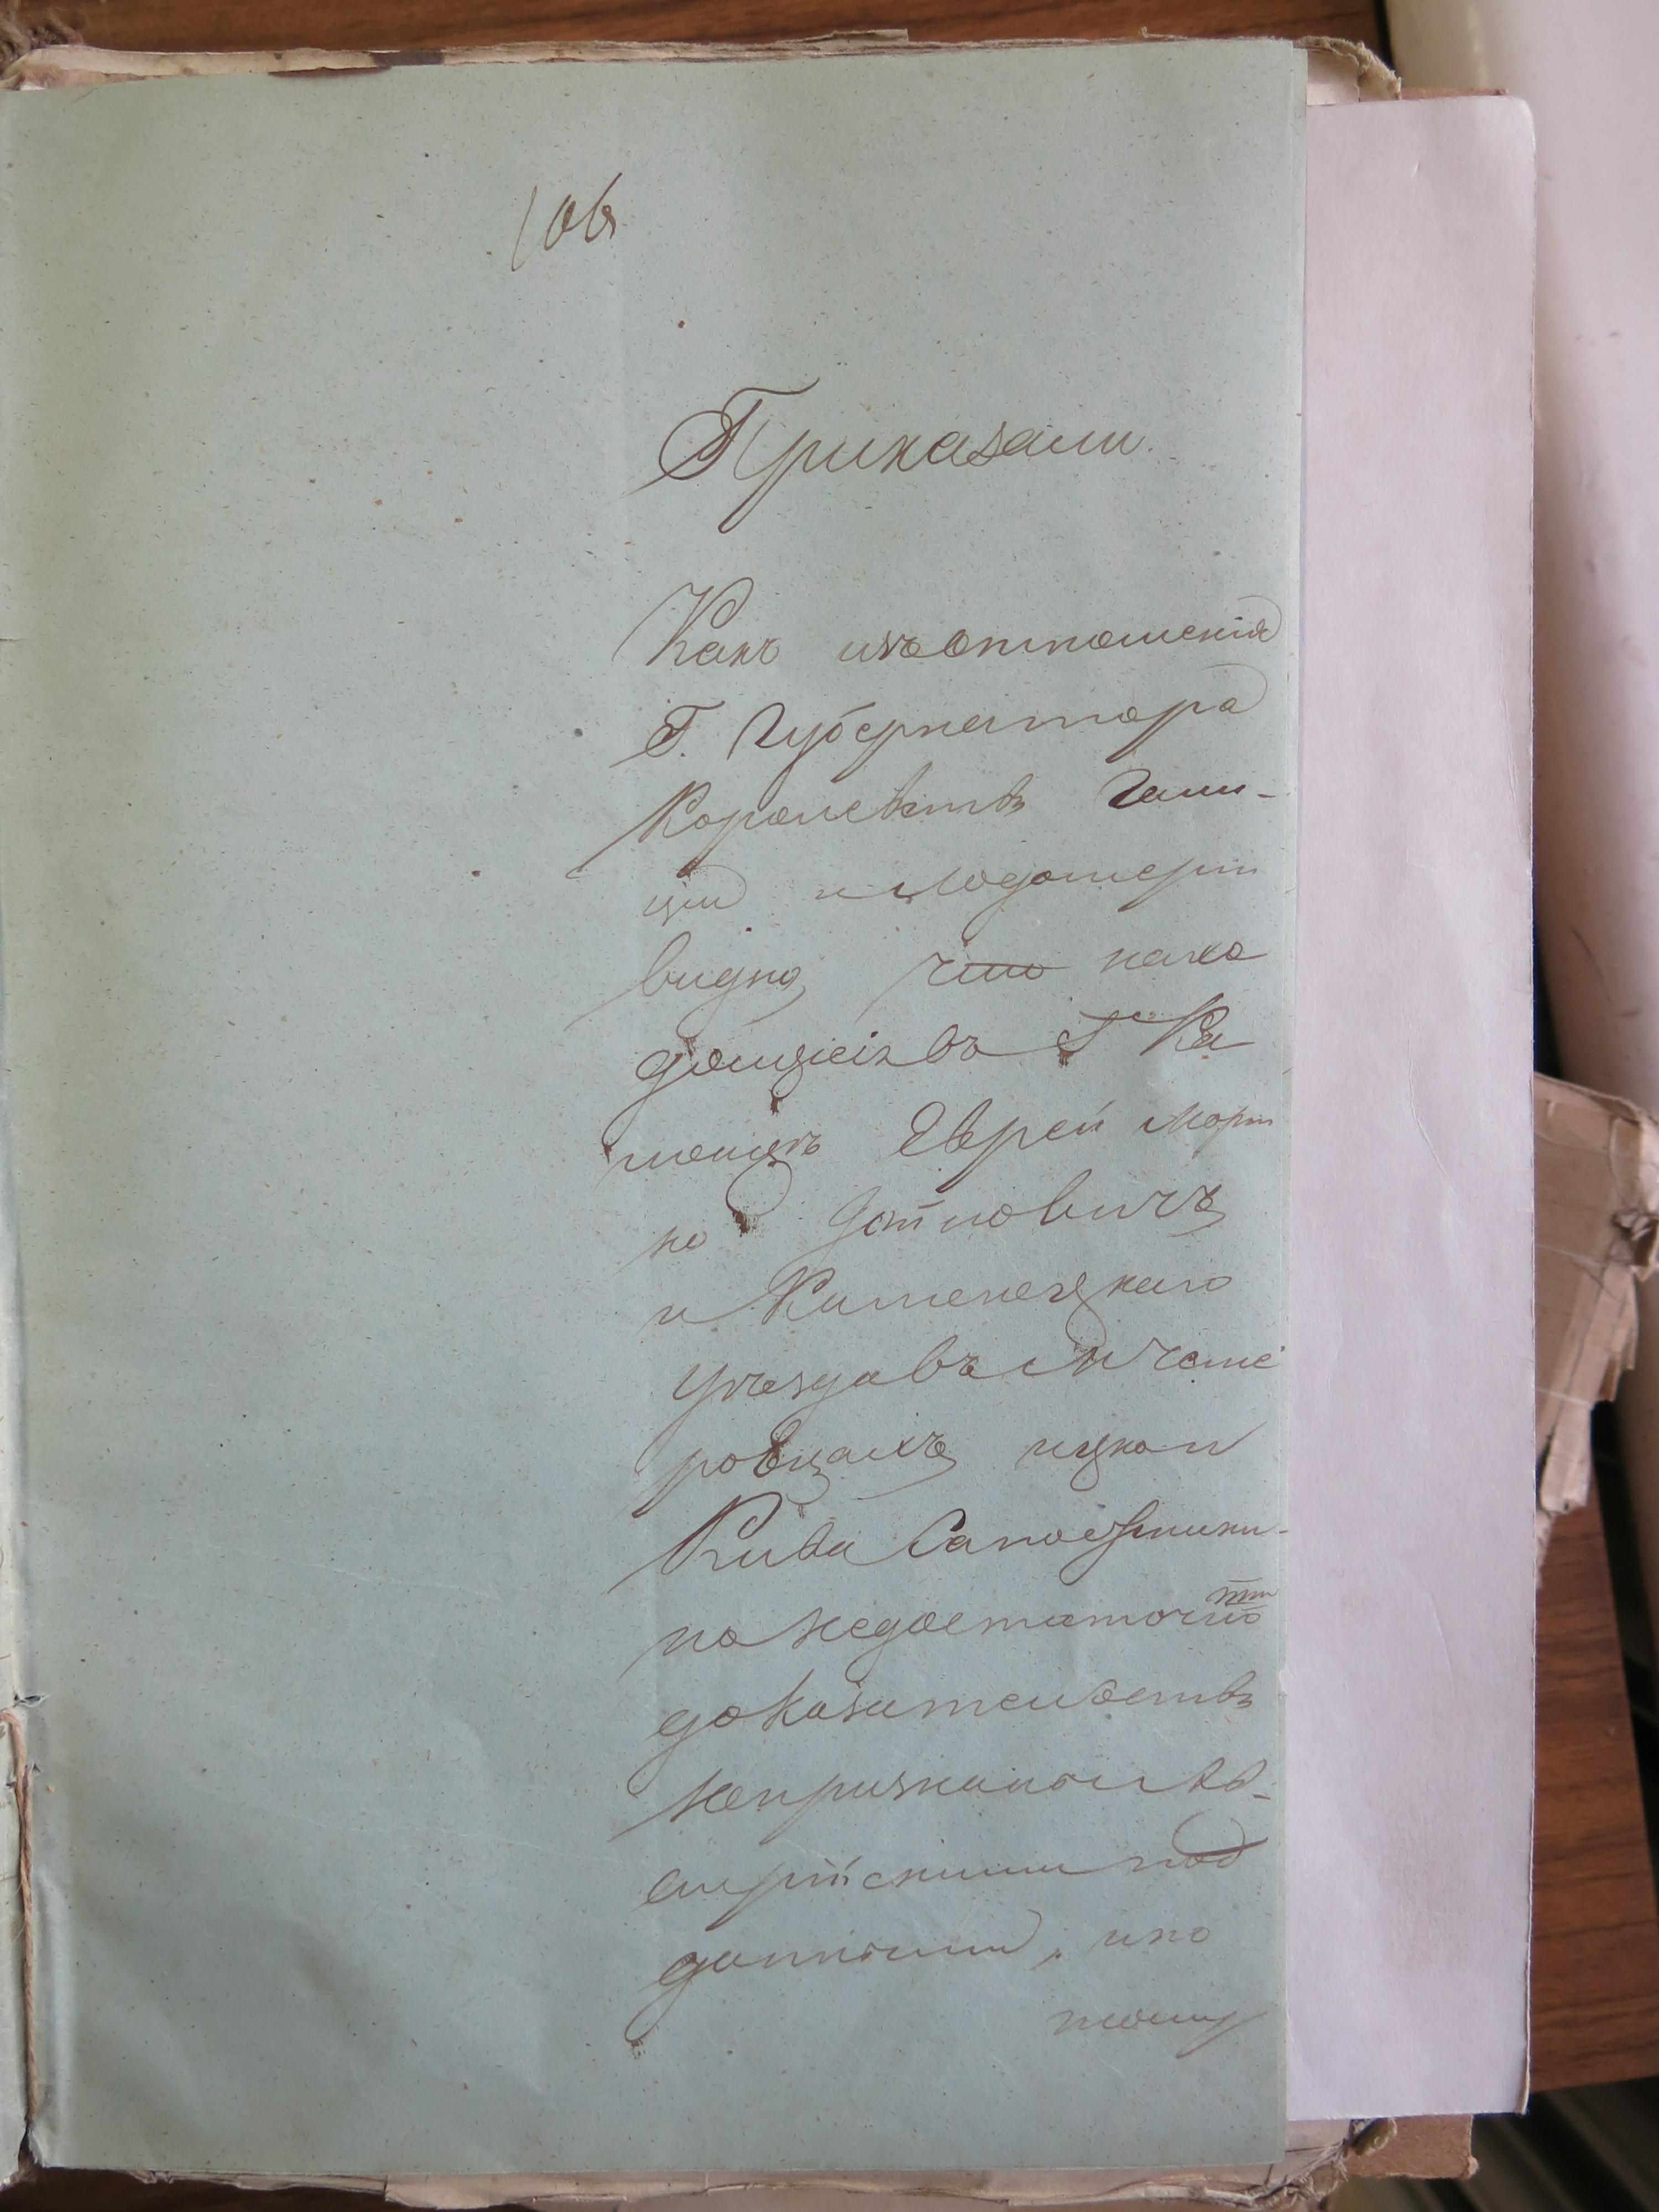 106
Приказали.
Какъ изъ отношенія
Г. Губернатора
Королевствъ Гали-
ціи и Лодомеріи
видно, что нахо
дящіеся въ Г. Ка
менцѣ Еврей Морт
ко
и Каменецкаго
уѣзда въ
ровцахъ Ицко и
Кива
по недостаточно
доказательствъ
непризнаны Ав-
стрійскими под
данными, и по
тому